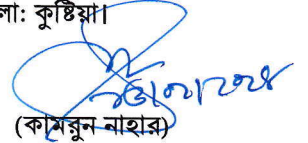 লা: কুষ্টিয়া।
(কামরুন নাহার)